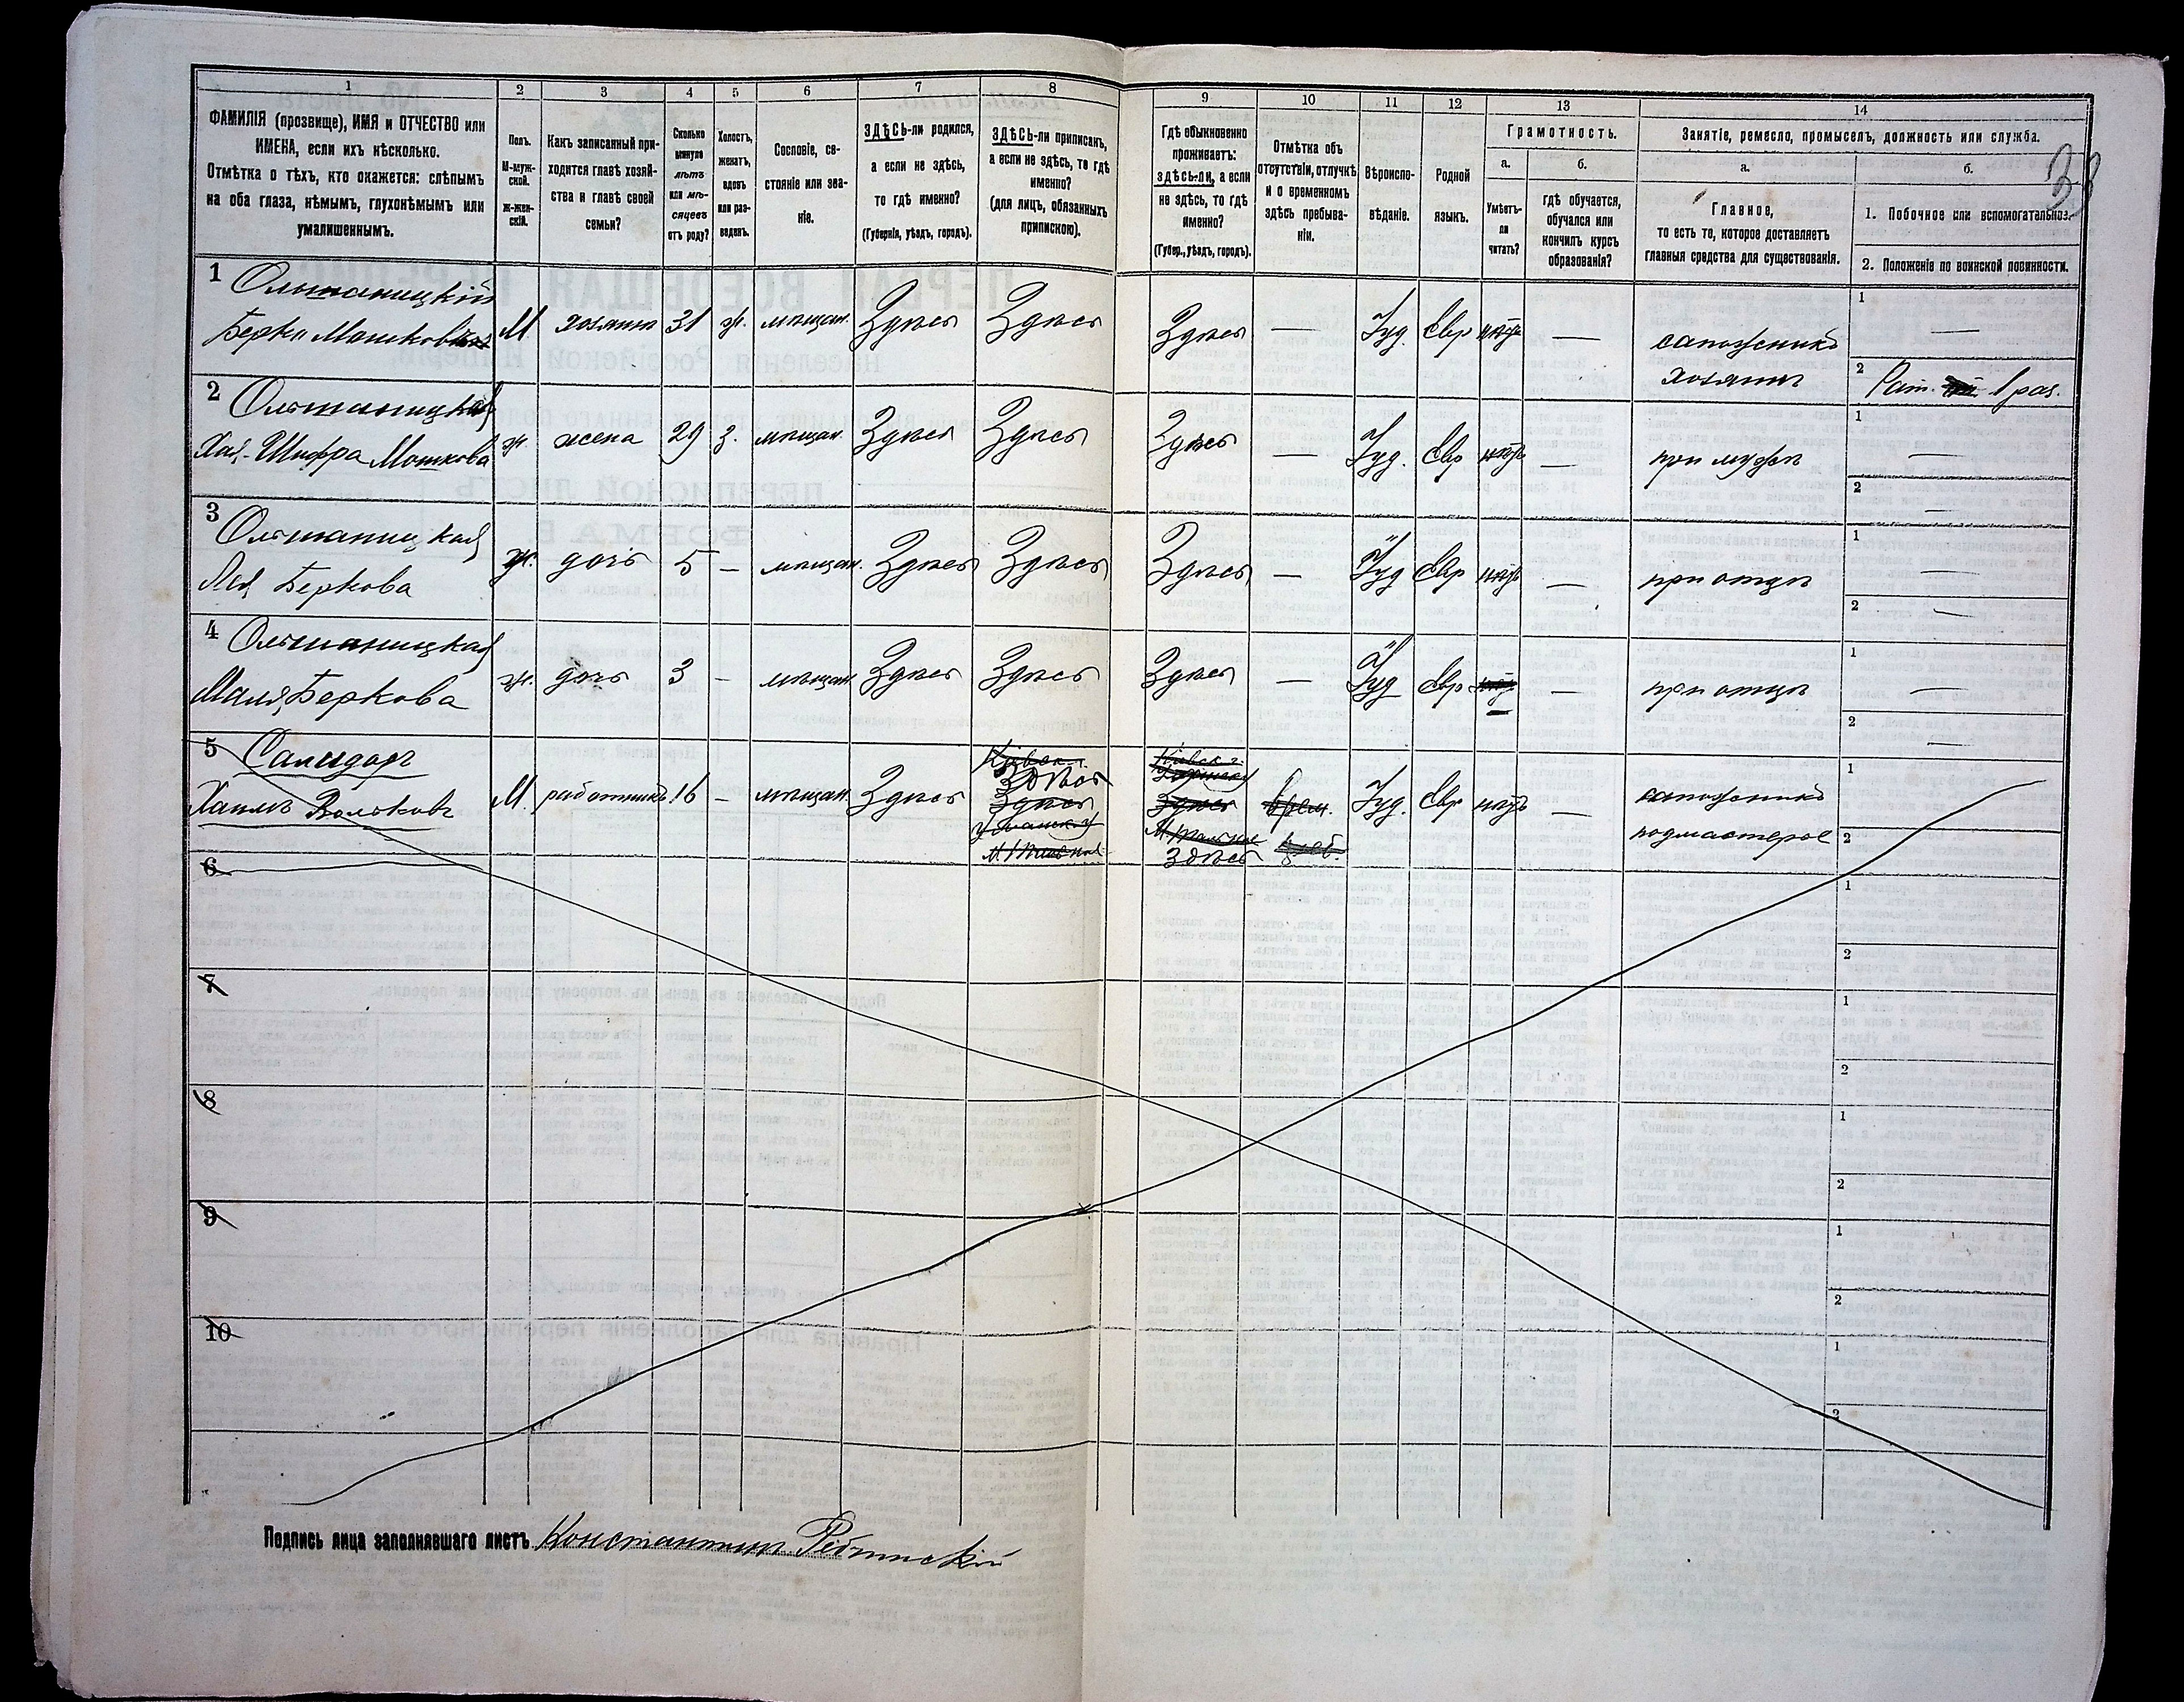 1 2 3 4 5 6 7 8 9 10 11 12 13 14
ФАМИЛІЯ (прозвище), ИМЯ и ОТЧЕСТВО или
ИМЕНА, если ихъ нѣсколько.
Отмѣтка о тѣхъ, кто окажется: слѣпымъ
на оба глаза, нѣмымъ, глухонѣмымъ или
умалишеннымъ.
Полъ.
М-муж-
ской.
Ж-жен-
скій.
Какъ записанный при-
ходится главѣ хозяй-
ства и главѣ своей
семьи?
Сколько
минуло
лѣтъ
или мѣ-
сяцевъ
отъ роду?
Холостъ,
женатъ,
вдовъ
или раз-
веденъ.
Сословіе, со-
стояніе или зва-
ніе.
ЗДѢСЬ-ли родился,
а если не здѣсь,
то гдѣ именно?
(Губернія, уѣздъ, городъ).
ЗДѢСЬ-ли приписанъ,
а если не здѣсь, то гдѣ
именно?
(для лицъ, обязанныхъ
припискою).
Гдѣ обыкновенно
проживаетъ:
здѣсь-ли, а если
не здѣсь, то гдѣ
именно?
(Губер., уѣздъ, городъ).
Отмѣтка объ
отсутствіи, отлучкѣ
и о временномъ
здѣсь пребыва-
ніи.
Вѣроиспо-
вѣданіе.
Родной
языкъ.
Грамотность.
а.
Умѣетъ-
ли
читать?
б.
гдѣ обучается,
обучался или
кончилъ курсъ
образованія?
Занятіе, ремесло, промыселъ, должность или служба.
а.
Главное,
то есть то, которое доставляетъ
главныя средства для существованія.
б.
1. Побочное или вспомогательное.
2. Положеніе по воинской повинности.
33
1 Ольшаницкій
Берко Мошковъ М хозяинъ 31 ж. мѣщан. Здѣсь Здѣсь Здѣсь — Іуд. Евр нѣтъ — сапожникъ
хозяинъ
1 —
2 Рат. 1 раз.
2 Ольшаницкая
Хая-Шифра Мошкова ж. жена 29 з. мѣщан. Здѣсь Здѣсь Здѣсь — Іуд. Евр нѣтъ — при мужѣ
1 —
2 —
3 Ольшаницкая
Лея Беркова ж. дочь 5 — мѣщан. Здѣсь Здѣсь Здѣсь — Іуд Евр нѣтъ — при отцѣ
1 —
2 —
4 Ольшаницкая
Маля Беркова ж. дочь 3 — мѣщан. Здѣсь Здѣсь Здѣсь — Іуд Евр нѣтъ — при отцѣ
1 —
2 —
5
Хаимъ Вольковъ М. работникъ 16 — мѣщан. Здѣсь
Кіевск. г.
Здѣсь
Здѣсь
Уманск. у
Кіевск. г.
Здѣсь
Здѣсь
Врем. Іуд. Евр нѣтъ — сапожникъ
подмастерье
1
2
6
1
2
7
1
2
8
1
2
9
1
2
10
1
2
Подпись лица заполнявшаго листъ Константинъ